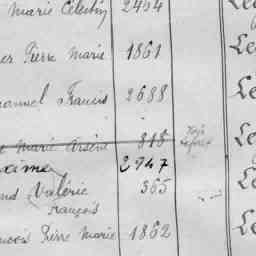 Marie Célestin 2464 Le
er Pierre Marie 1861 Le
annuel Francis 2688 Le
e Marie Arsène 818 Le
aime 2947
and Valérie 565 Le
François
ancois Pierre Marie 1862 Le